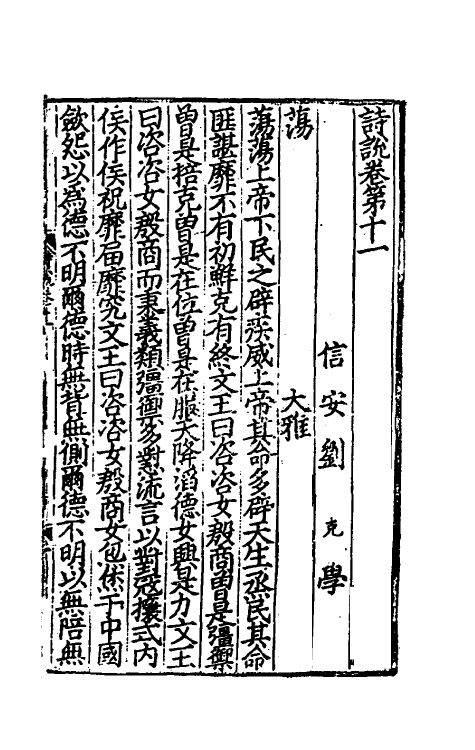 詩說卷第十一
信安劉克學
蕩 大雅
蕩蕩上帝下民之辟疾威上帝其命多辟天生烝民其命
匪諶靡不有初鮮克有終文王曰咨咨女殷商曾是彊禦
曾是掊克曾是在位曾是在服天降滔德女興是力文王
曰咨咨女殷商而秉義類彊禦多懟流言以對寇攘式內
侯作侯祝靡届靡究文王曰咨咨女殷商女炰烋于中國
斂怨以為德不明爾德時無背無側爾德不明以無陪無